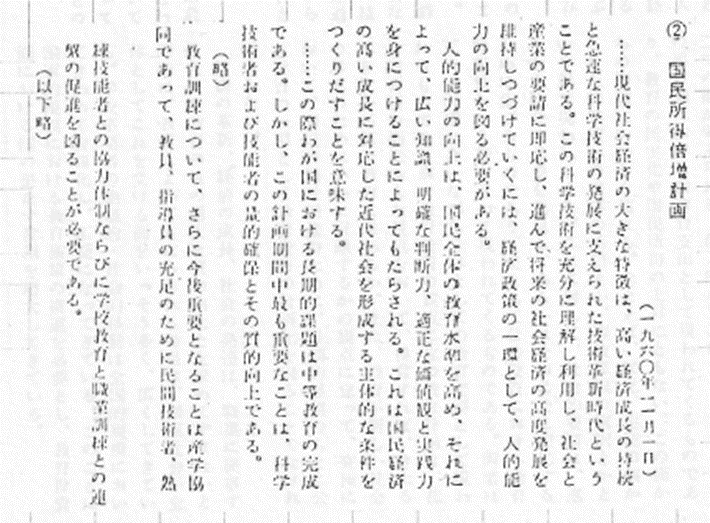 ② 国民所得倍増計画
(一九六〇年一一月一日)
……現代社会経済の大きな特徴は、高い経済成長の持続
と急速な科学技術の発展に支えられた技術革新時代という
ことである。この科学技術を充分に理解し利用し、社会と
産業の要請に即応し、進んで、将来の社会経済の高度発展を
維持しつづけていくには、経済政策の一環として、人的能
力の向上を図る必要がある。
人的能力の向上は、国民全体の教育水準を高め、それに
よって、広い知識、明確な判断力、適正な価値観と実践力
を身につけることによってもたらされる。これは国民経済
の高い成長に対応した近代社会を形成する主体的な条件を
つくりだすことを意味する。
……この際わが国における長期的課題は中等教育の完成
である。しかし、この計画期間中最も重要なことは、科学
技術者および技能者の量的確保とその質的向上である。
(略)
教育訓練について、さらに今後重要となることは産学協
同であって、教員、指導員の充足のために民間技術者、熟
練技能者との協力体制ならびに学校教育と職業訓練との連
繫の促進を図ることが必要である。
(以下略)